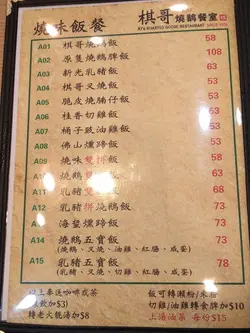 燒味飯餐
棋哥燒鵝餐室
KI'S ROASTED GOOSE RESTAURANT
A01 棋哥燒鵝飯 58
A02 原隻燒鵝髀飯 108
A03 新光乳豬飯 53
A04 棋哥叉燒飯 53
A05 脆皮燒腩仔飯 53
A06 桂香切雞飯 53
A07 桶子豉油雞飯 53
A08 佛山燻蹄飯 53
A09 燒味雙拼飯 58
A10 燒鵝雙拼飯 63
A11 乳豬雙拼飯 63
A12 乳豬拼燒鵝飯 73
A13 海蜇燻蹄飯 63
A14 燒鵝五寶飯 73
(燒鵝、叉燒、油雞、紅腸、咸蛋)
A15 乳豬五寶飯 78
(乳豬、叉燒、切雞、紅腸、咸蛋)
以上奉送咖啡或茶
飲加$3)
轉老火靚湯加$8
飯可轉瀨粉/米粉
切雞/油雞轉食髀加$10
上湯油菜 每份$15